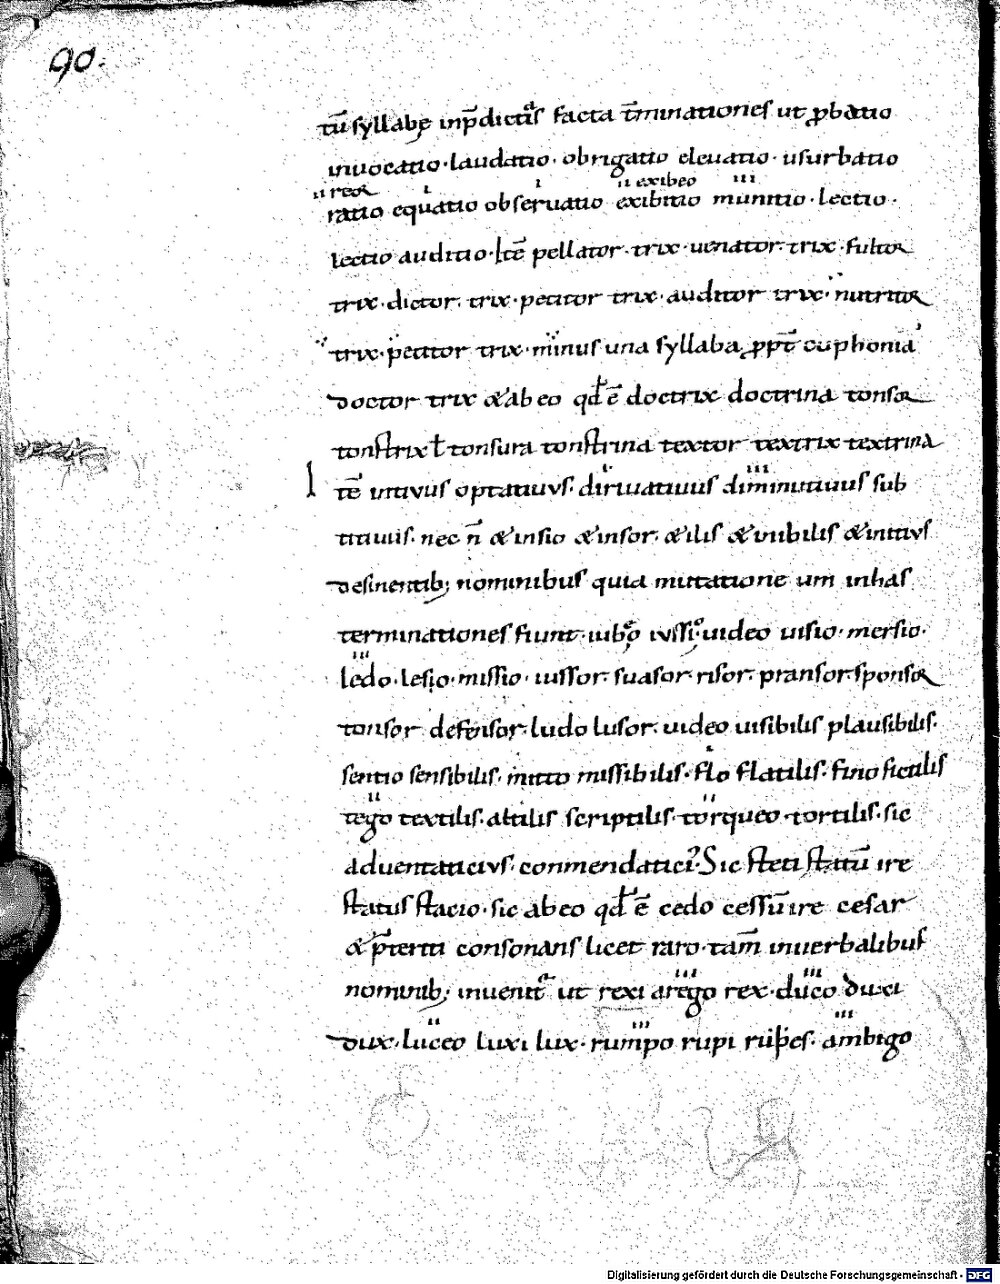 90.
tū syllabę inp̄dictis facta t̄minationes ut ꝓbatio
inuocatio · laudatio · obrigatio eleuatio · usurbatio
ii reor i i ii exibeo iii
ratio equatio obseruatio exibitio munitio · lectio ·
lectio auditio · Itē pellator · trix · uenator · trix · fultor
trix · dictor · trix · petitor trix · auditor trix · nutritor
trix · petitor trix · minus una syllaba ꝓpt̄ euphoniā
doctor trix & abeo qđ ē doctrix doctrina tonsor
tonstrix ł tonsura tonstrina textor textrix textrina
Itē iriuus optatiuus · diriuatiuus diminutiuus sub
titiuus · nec n̄ & insio & insor · & ilis & inibilis & initius
desinentib; nominibus quia mutatione um inhas
terminationes fiunt · iubeo iussio · uideo uisio · mersio ·
iii
ledo · lesio · missio · iussor · suasor · risor · pransor · sponsor
tonsor defensor · ludo lusor · uideo uisibilis plausibilis ·
sentio sensibilis · mitto missibilis · flo flatilis · fino fictilis
tego textilis · altilis scriptilis · torqueo · tortilis · sic
aduentaticius · conmendatici · Sic steti statū ire
status stacio · sic abeo qđ ē cedo cessū ire cesar
& p̄teriti consonans licet raro · tam̄ inuerbalibus
nominib; inuenit̄ ut rexi arego rex · duco duxi
dux · luceo luxi lux · rumpo rupi rupes · ambigo
Digitalisierung gefördert durch die Deutsche Forschungsgemeinschaft - DFG